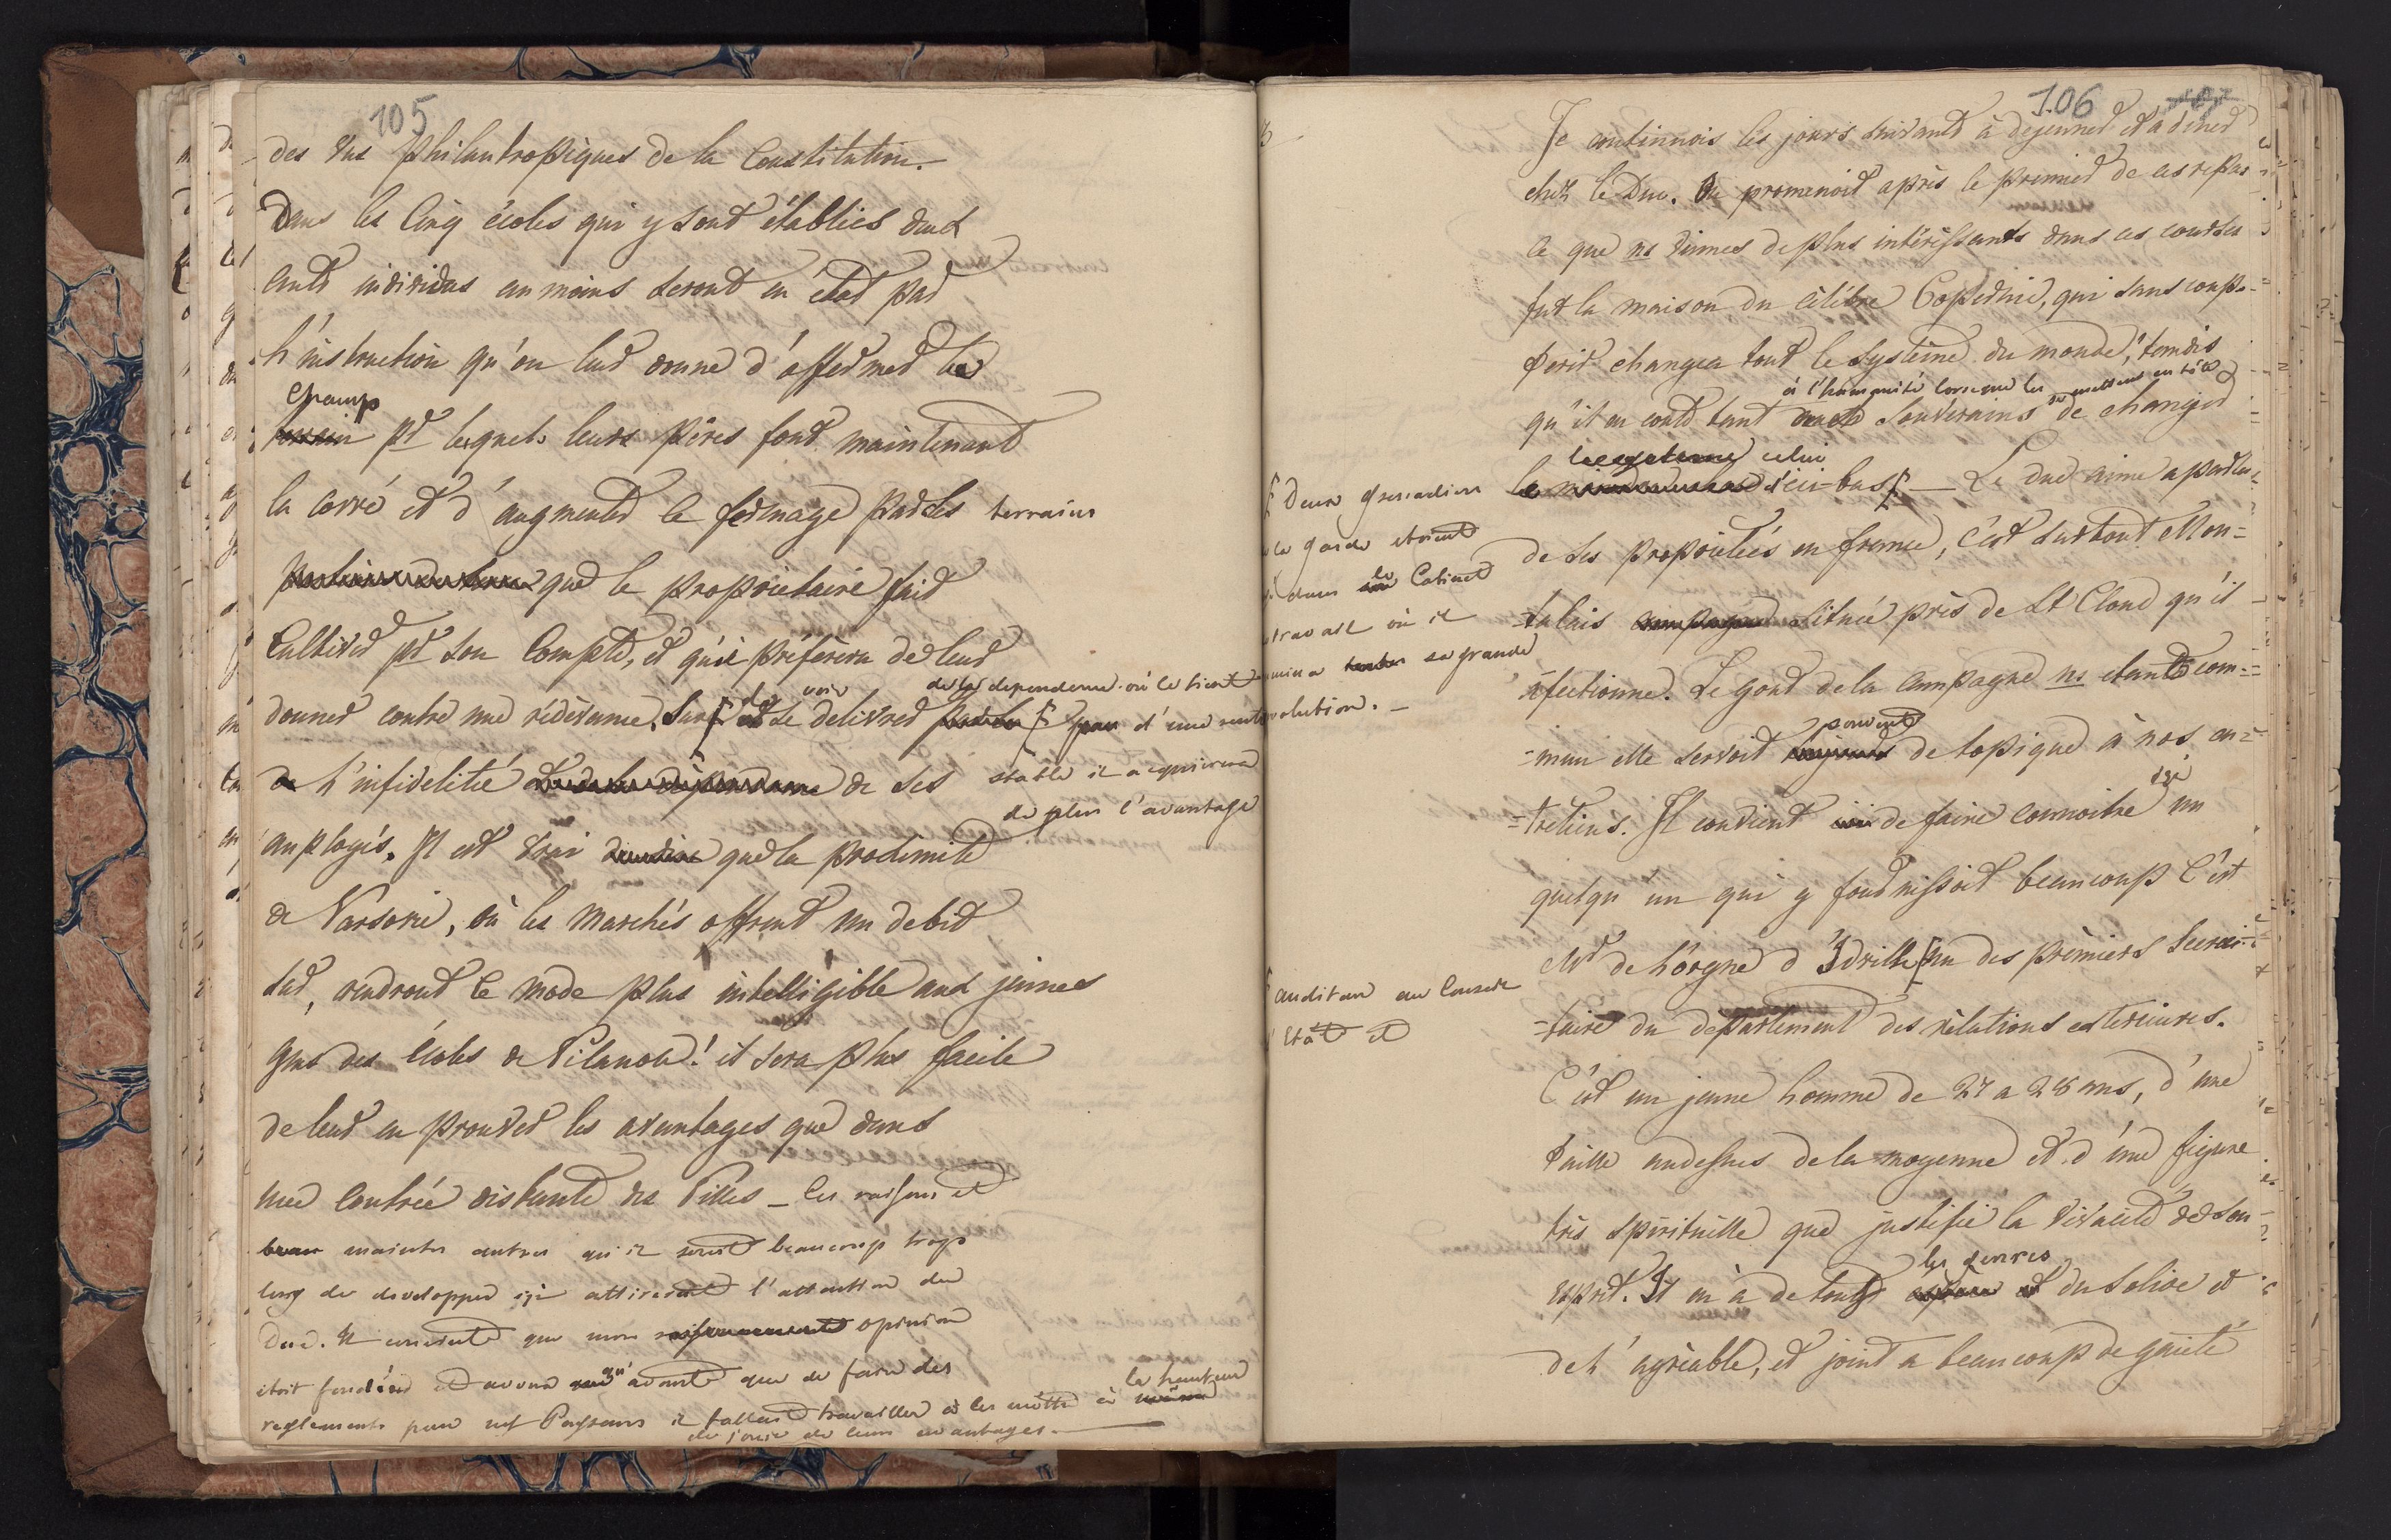 105
des vus philantropiques de la Constitution.
Dans les Cinq écoles qui y sont établies deux
cents individus au moins seront en état par
l'instruction qu'on leur donne d'affermer les
champs
pr lesquels leurs pères font maintenant
la corvé et d'augmenter le fermage par des terrains
que le proprietaire fait
Cultiver pr son Compte, et qu'il préférera de leur
donner contre une rédévance, sur de se voir delivrer
de la dependence où le tient
l'infidelité de ses
amployés. Il est vrai que la proximité
d'une rente
stable il acquierera
de plus l'avantage
de Varsovie, où les marchés offrent un debit
sur, rendront ce mode plus intelligible aux jeunes
gens des écoles de Vilanov! il sera plus facile
de leur en prouver les avantages que dans
une contrée distante des Villes – Ces raisons et
maintes autres qu'il seroit beaucoup trop
long de developper ici attirerent l'attention du
Duc. Il convient que mon opinion
étoit fondée et avoua qu'avant que de faire des
reglements pour nos Paysans il falloit travailler à les mettre à la hauteur
de jouir de leurs avantages. —
106
Je continuois les jours suivants à dejeuner et à diner
chez le Duc. On promenoit après le premier de ces repas
ce que ns vimes de plus intéressants dans ces courses
fut la maison du célèbre Copernic, qui sans coup-
ferir changea tout le système du monde, tandis
à l'humanité lorsque les
qu'il en coute tant Souverains se mettent en tête de changer
celui
d'ici-bas — Le duc aime a parler
§ Deux grenadiers
de garde etoient
dans le Cabinet
travail où il
sa grande
révolution. —
de ses propriétés en france, c'est surtout Mon-
-talais située près de St Cloud qu'il
affectionne. Le gout de la Campagne ns etant com-
-mun elle servoit souvent de topique à nos en-
-tretiens. Il convient de faire connoitre ici un
quelqu'un qui y fournissoit beaucoup C'est
Mr de Lorgne d'Idville § un des premiers secrai-
§ auditeur au Conseil
d'Etat et
-taire du département des rélations exterieures.
C'est un jeune homme de 27 a 28 ans, d'une
taille audessus de la moyenne et d'une figure
très spirituelle que justifie la vivacité de son
esprit. Il en à de touts les genres du solide et
de l'agréable, et joint a beaucoup de gaieté